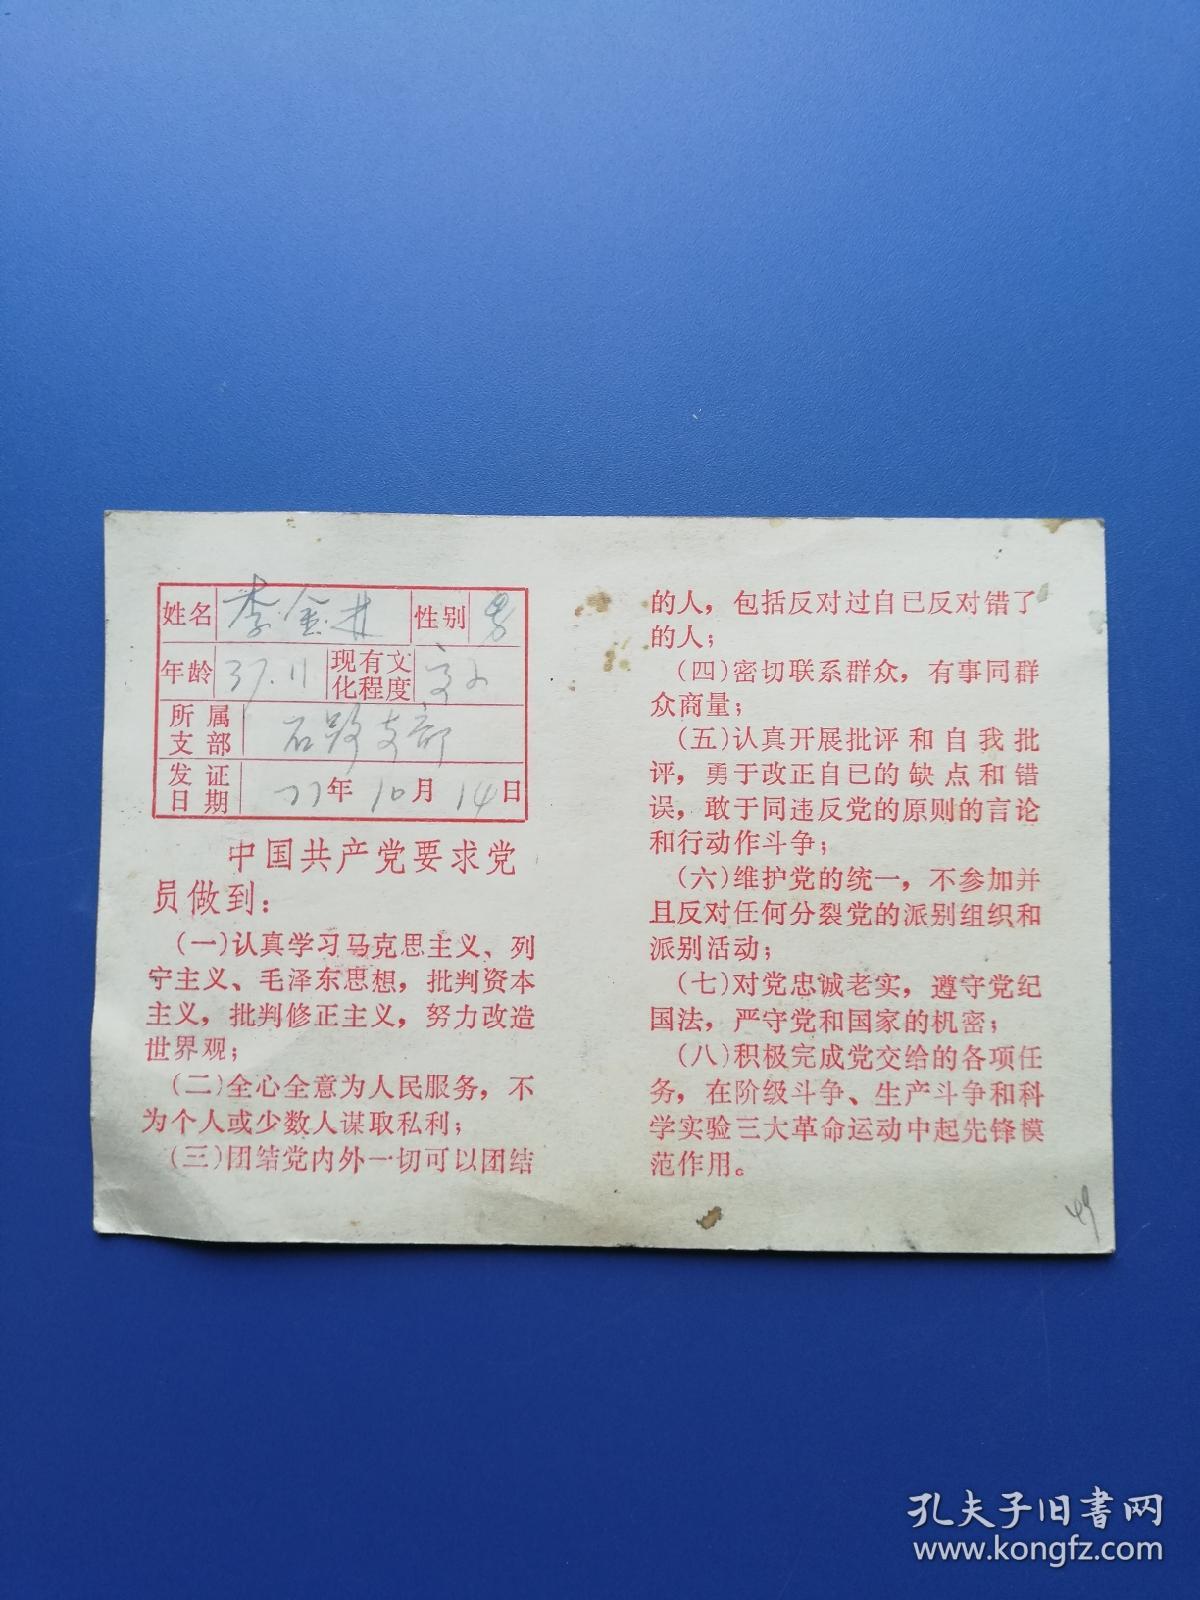 姓名 李金井 性别 男
年龄 37.11 现有文化程度 高小
所属支部 石路支部
发证日期 77年10月14日
中国共产党要求党
员做到：
（一）认真学习马克思主义、列
宁主义、毛泽东思想，批判资本
主义，批判修正主义，努力改造
世界观；
（二）全心全意为人民服务，不
为个人或少数人谋取私利；
（三）团结党内外一切可以团结
的人，包括反对过自己反对错了
的人；
（四）密切联系群众，有事同群
众商量；
（五）认真开展批评和自我批
评，勇于改正自己的缺点和错
误，敢于同违反党的原则的言论
和行动作斗争；
（六）维护党的统一，不参加并
且反对任何分裂党的派别组织和
派别活动；
（七）对党忠诚老实，遵守党纪
国法，严守党和国家的机密；
（八）积极完成党交给的各项任
务，在阶级斗争、生产斗争和科
学实验三大革命运动中起先锋模
范作用。
孔夫子旧书网
www.kongfz.com